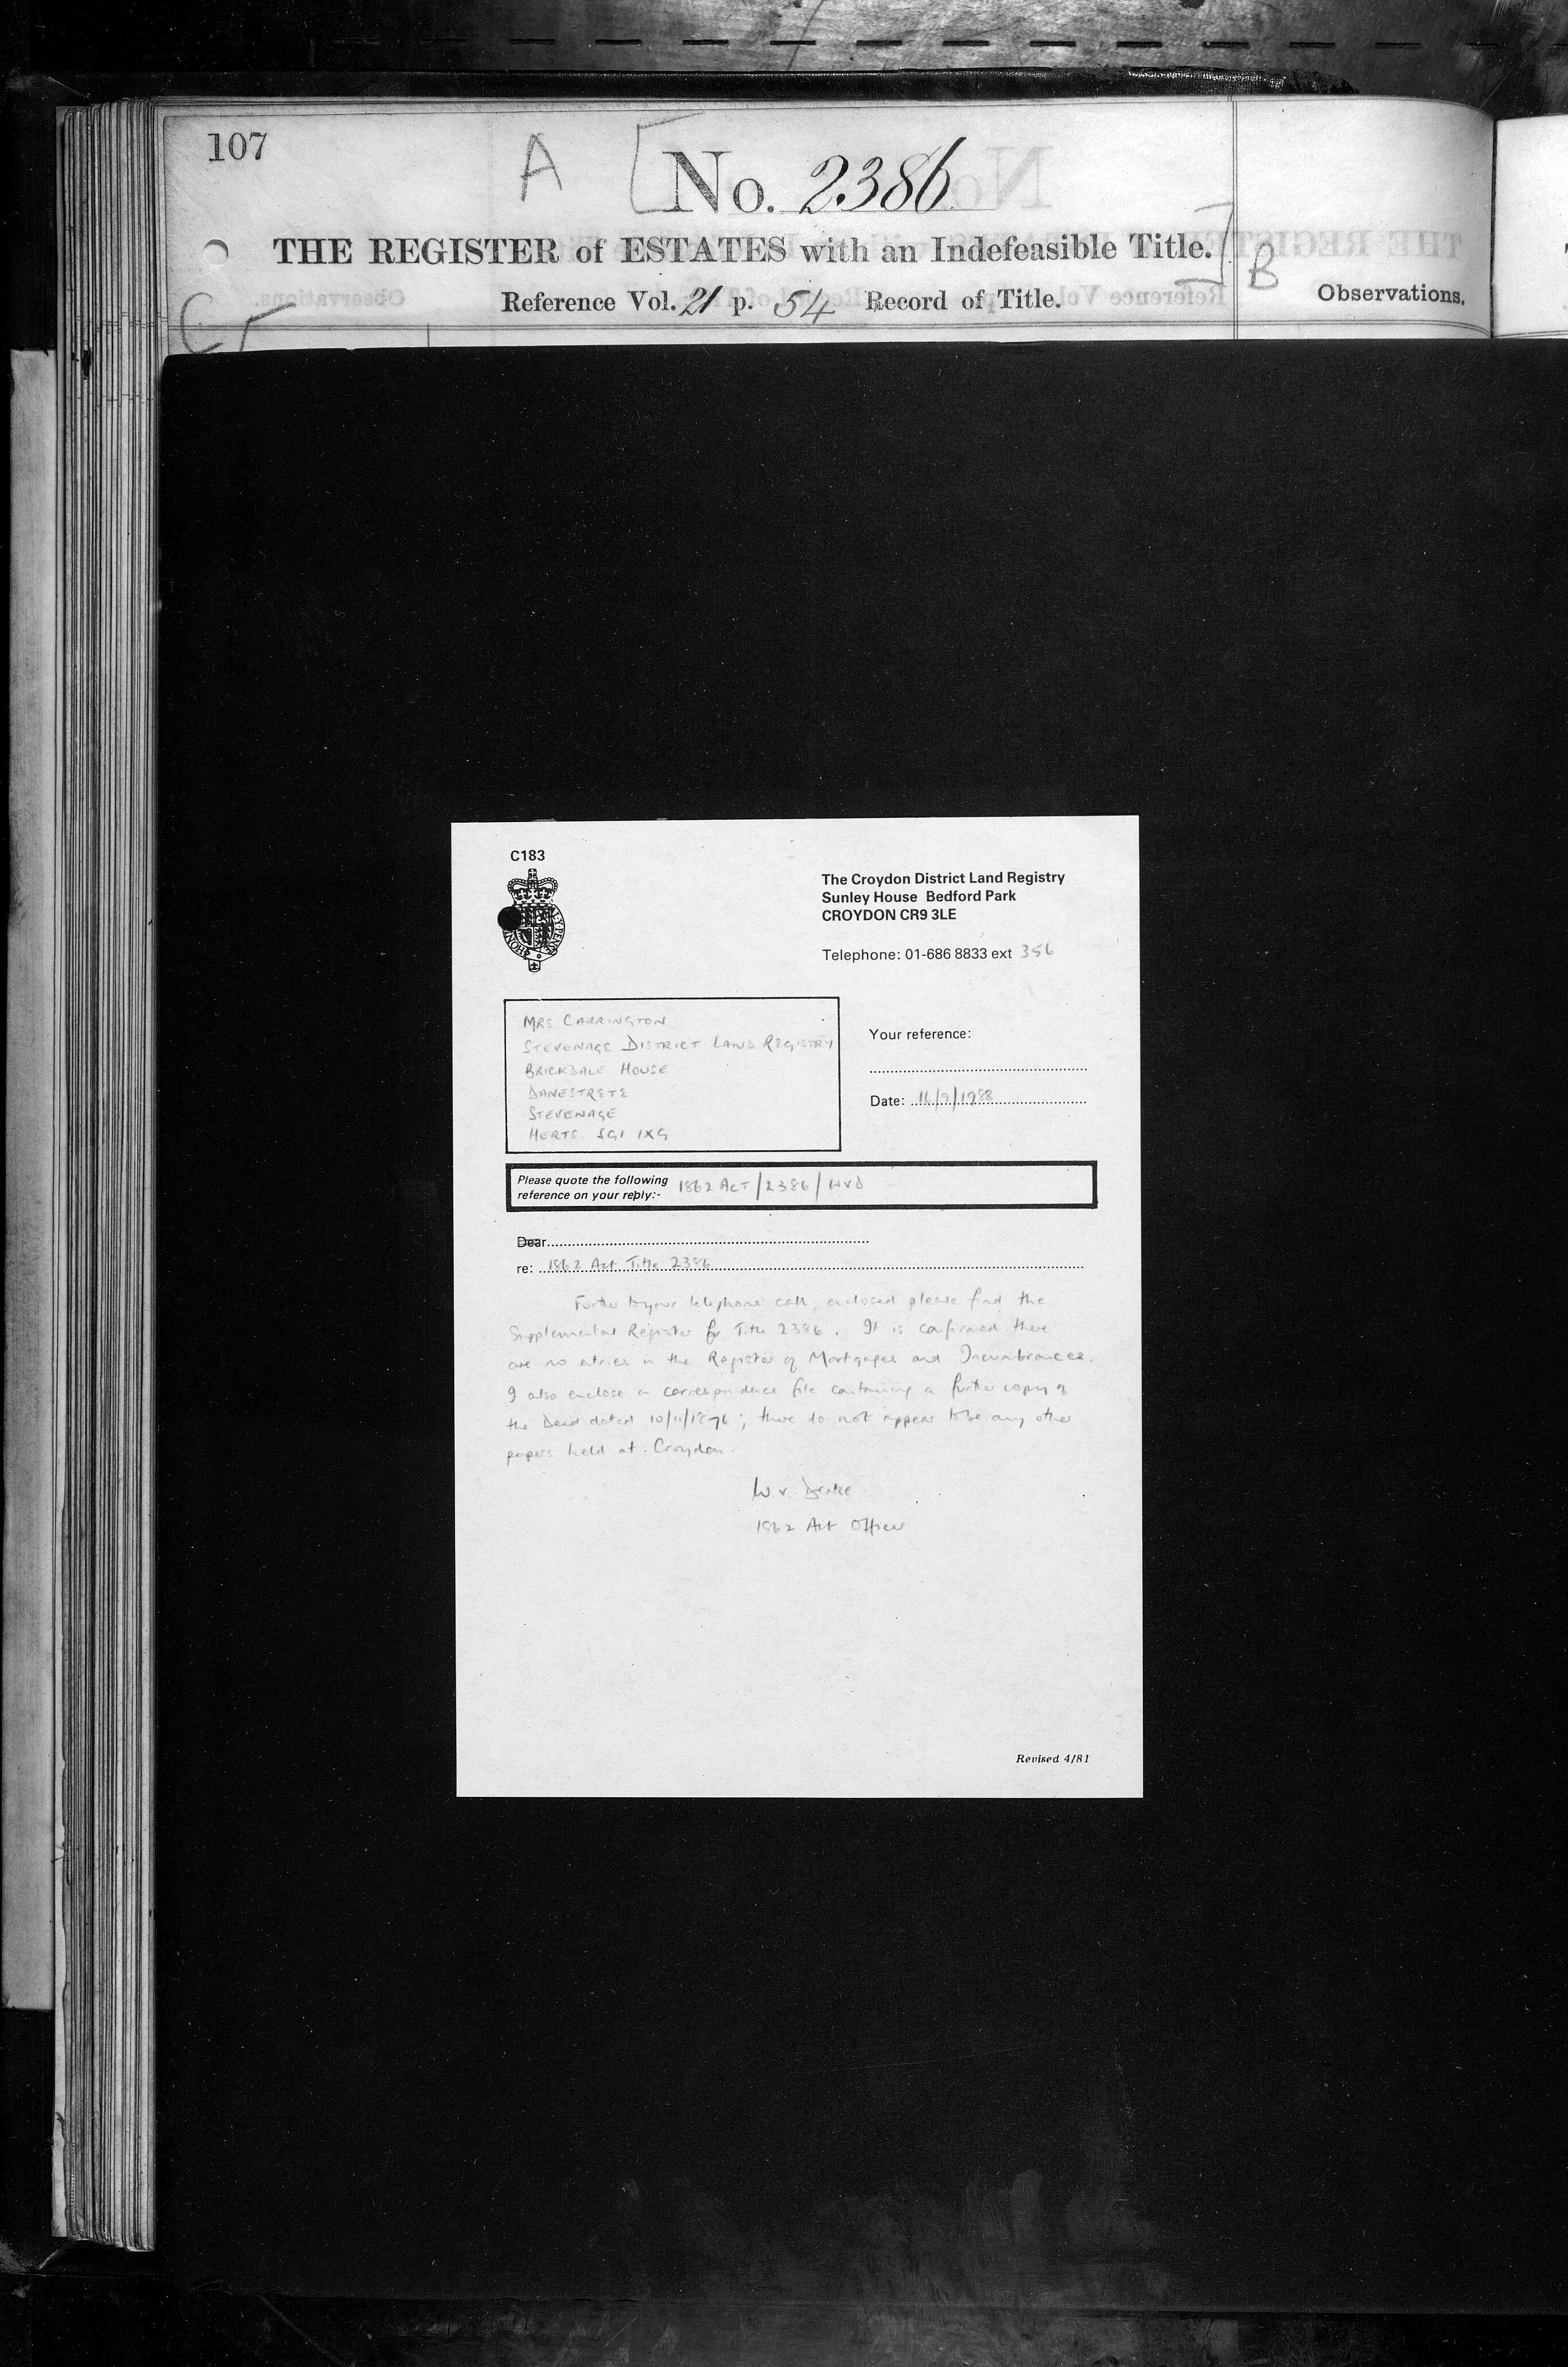 107
A [ No. 2386
THE REGISTER of ESTATES with an Indefeasible Title. ] B
Reference Vol. 21 p. 54 Record of Title.
Observations.
C
C183
The Croydon District Land Registry
Sunley House Bedford Park
CROYDON CR9 3LE
Telephone: 01-686 8833 ext 356
MRS CARRINGTON
STEVENAGE DISTRICT LAND REGISTRY
BRICKDALE HOUSE
DANESTRETE
STEVENAGE
HERTS SG1 1XG
Your reference:
Date: 16/9/1988
Please quote the following
reference on your reply:- 1862 ACT/2386/WVD
Dear
re: 1862 Act Title 2386
Further to your telephone call, enclosed please find the
Supplemental Register for Title 2386. It is confirmed there
are no entries in the Register of Mortgages and Incumbrances.
I also enclose a correspondence file containing a further copy of
the Deed dated 10/11/1876; there do not appear to be any other
papers held at Croydon.
W V Drake
1862 Act Officer
Revised 4/81